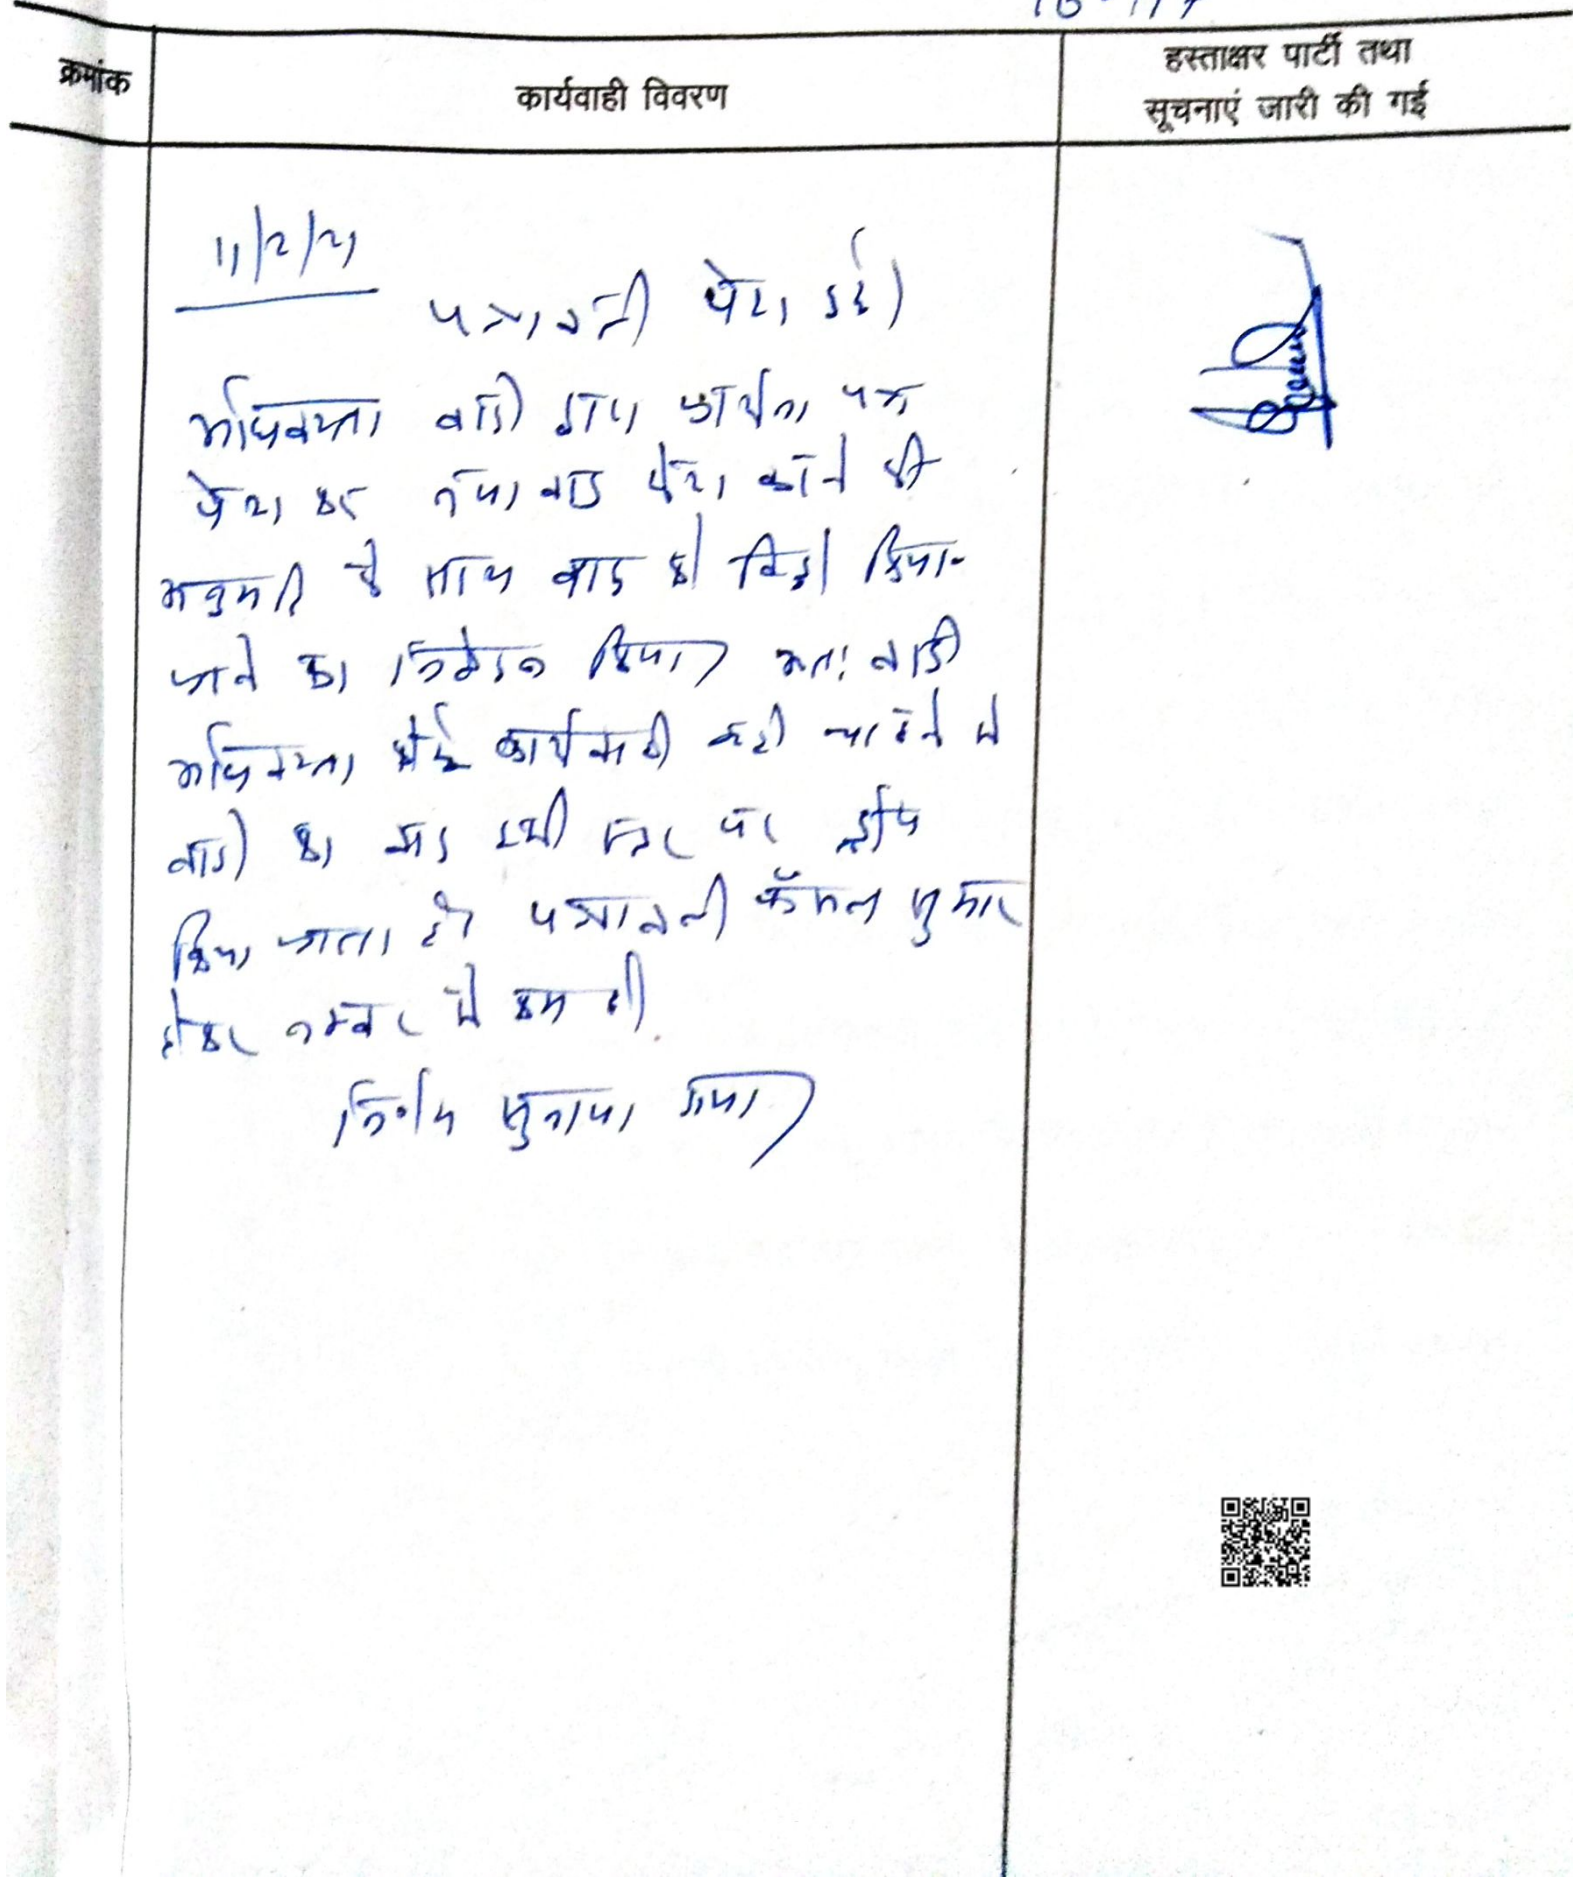 क्रमांक
कार्यवाही विवरण
हस्ताक्षर पार्टी तथा
सूचनाएं जारी की गई
11/2/21
पत्रावली पेश हुई।
अधिवक्ता वादी द्वारा प्रार्थना पत्र
पेश कर नया वाद पेश करने की
अनुमति के साथ वाद को विड्रो किया
जाने का निवेदन किया। अतः वादी
अधिवक्ता कोई कार्यवाही नहीं चाहने से
वादी का वाद इसी स्तर पर ड्रॉप
किया जाता है। पत्रावली फैसल शुमार
होकर नम्बर से कम हो।
निर्णय सुनाया गया।